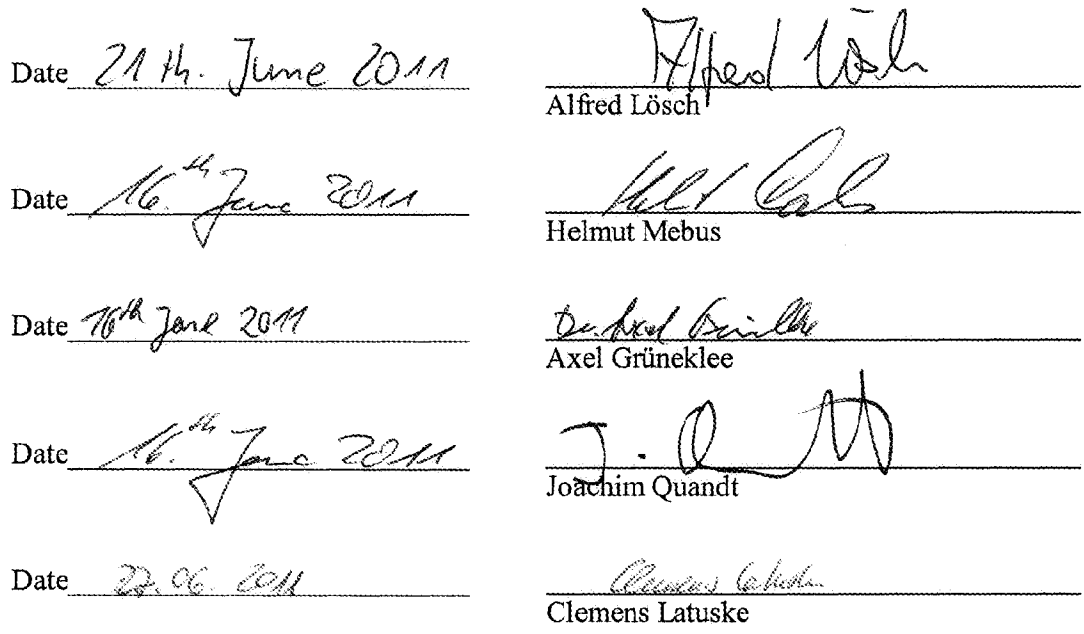 Date 21 th. June 2011 Alfred Lösch
Alfred Lösch
Date 16.th June 2011
Helmut Mebus
Date 16th June 2011 Dr. Axel Grüneklee
Axel Grüneklee
Date 16.th June 2011 J. Quandt
Joachim Quandt
Date 27.06.2011 Clemens Latuske
Clemens Latuske